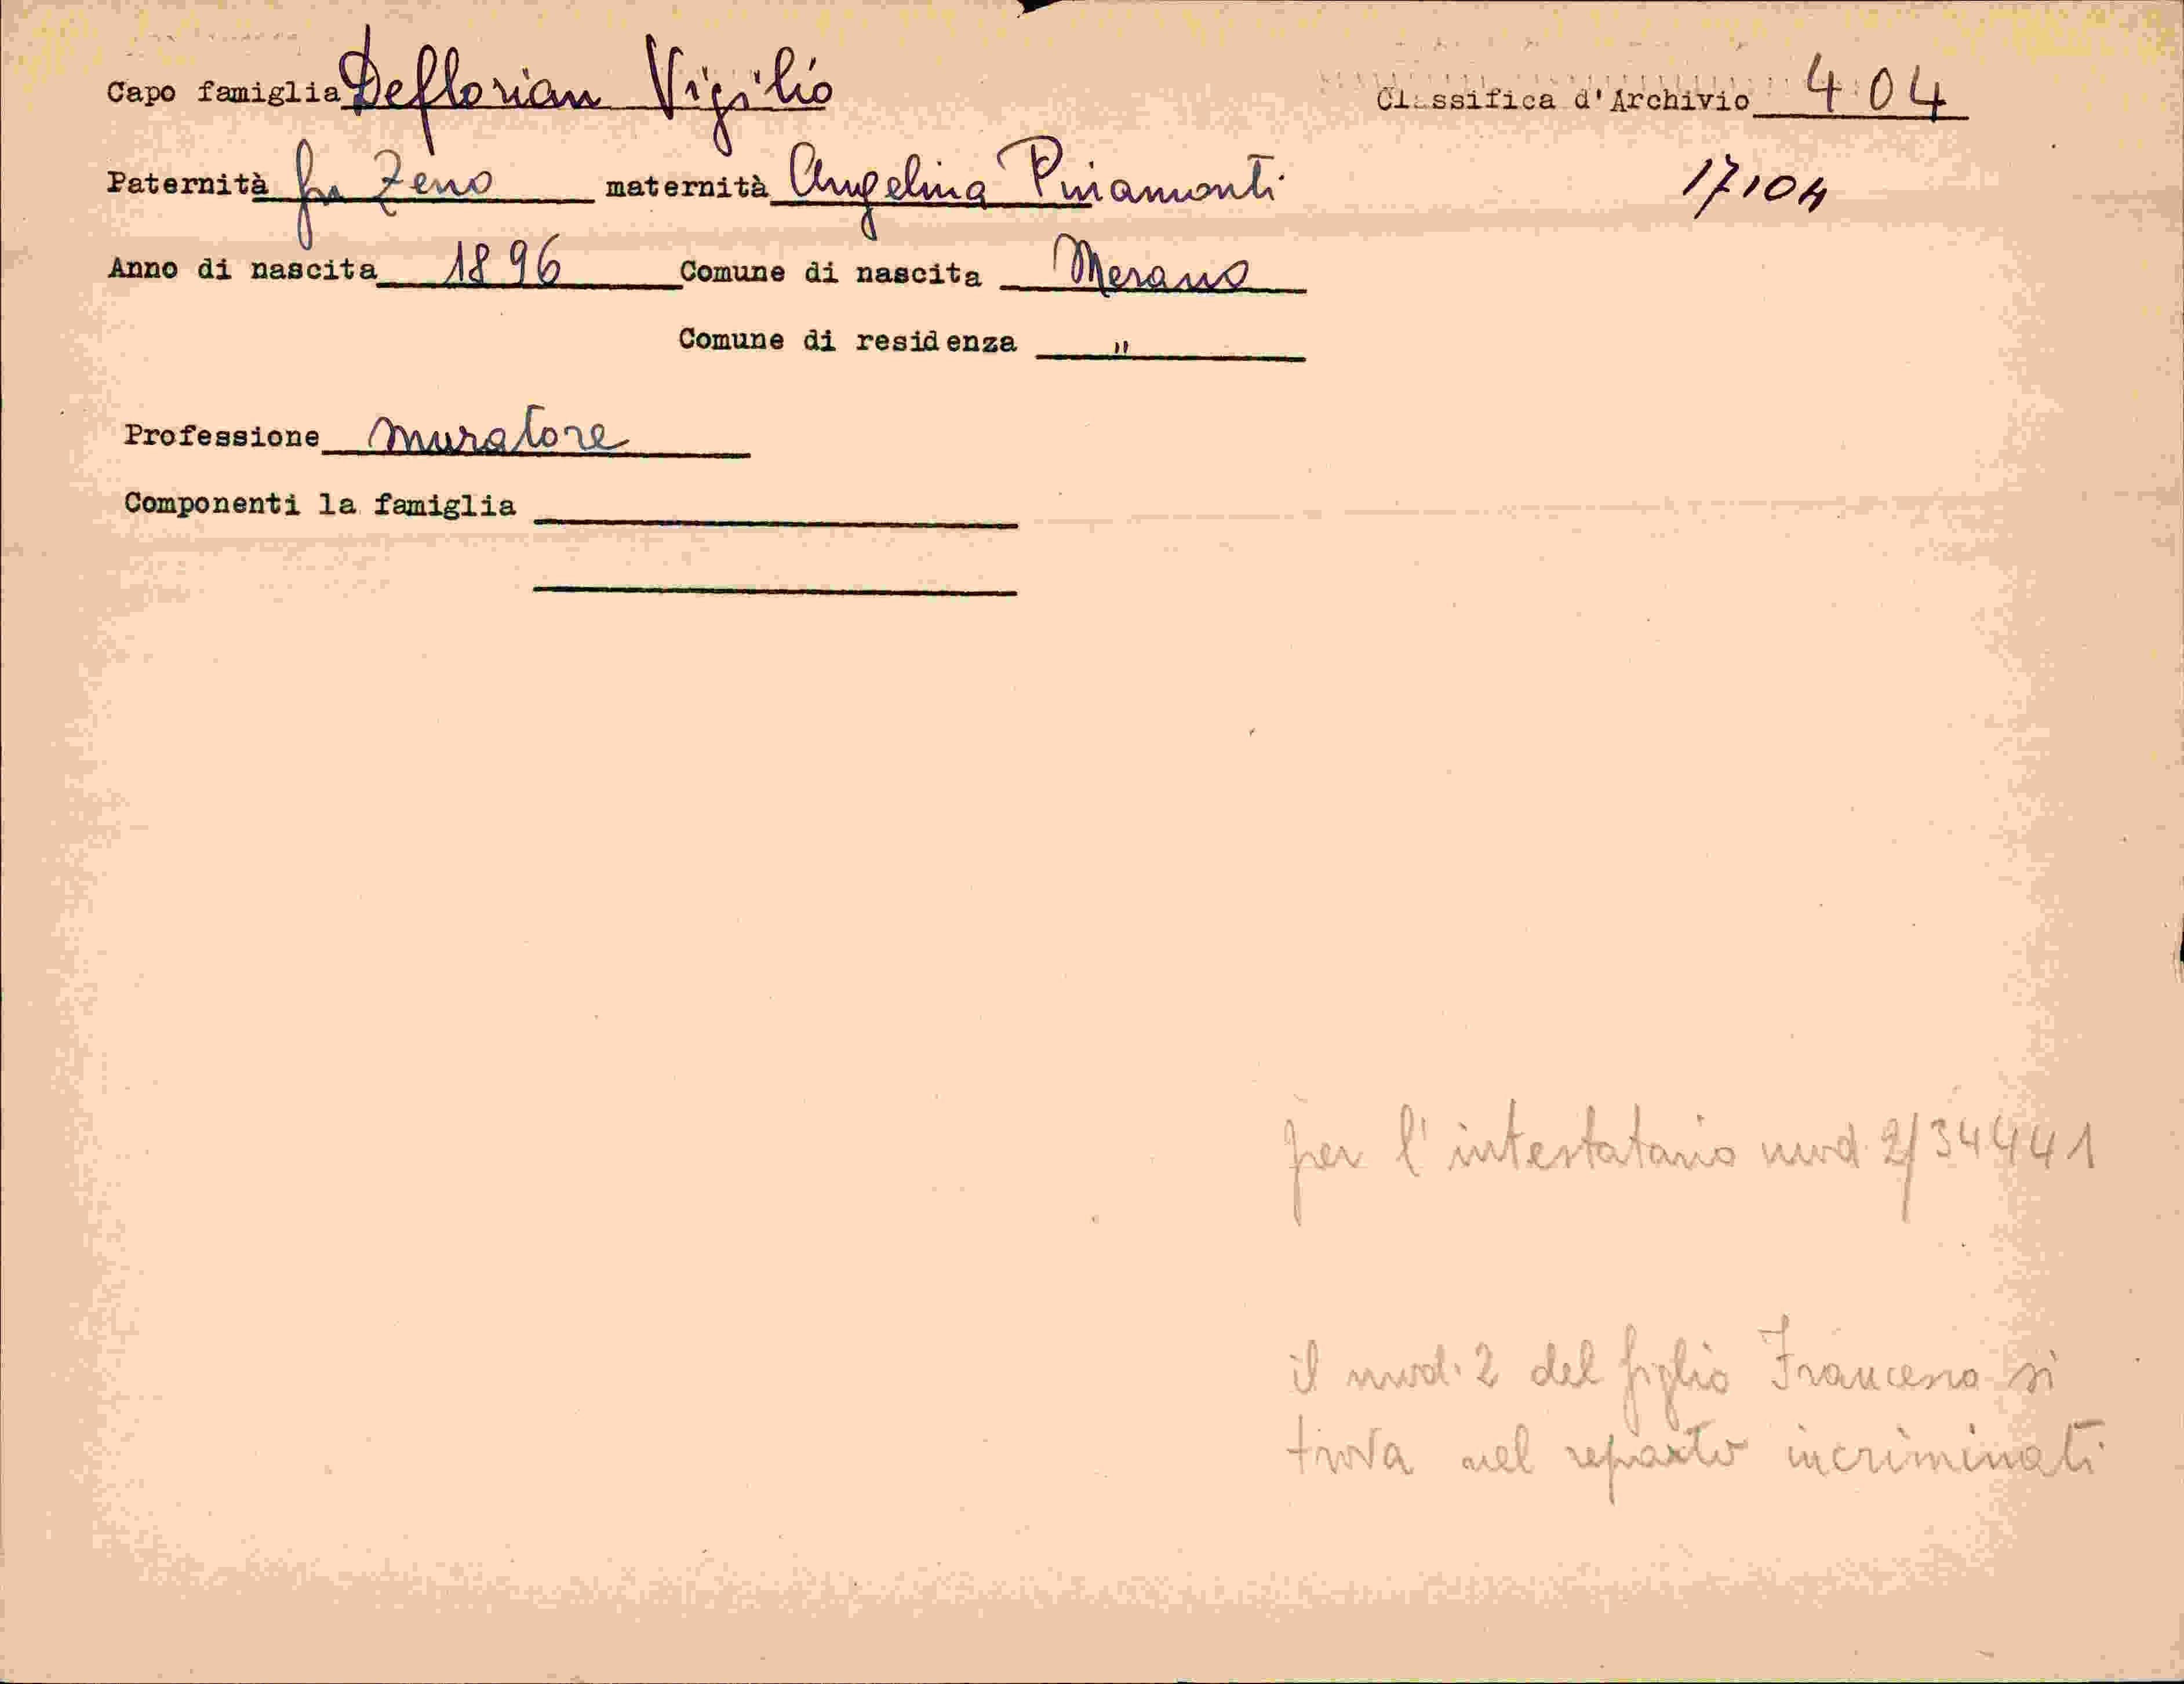 Capo famiglia Deflorian Vigilio
Classifica d'Archivio 404
Paternità fu Zeno maternità Angelina Piniamonti
17104
Anno di nascita 1896 Comune di nascita Merano
Comune di residenza "
Professione muratore
Componenti la famiglia
per l'intestatario mod. 2/34441
il mod. 2 del figlio Francesco si
trova nel reparto incriminati